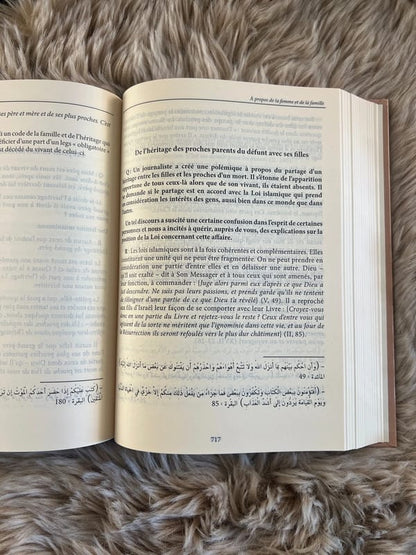 ses père et mère et de ses plus proches. C'est
un code de la famille et de l'héritage que
bénéficier d'une part d'un legs « obligatoire »
décédé du vivant de celui-ci.
(كتب عليكم إذا حضر أحدكم الموت إن
المتقين) البقرة - 180
À propos de la femme et de la famille
De l'héritage des proches parents du défunt avec ses filles
Q : Un journaliste a créé une polémique à propos du partage d'un
héritage entre les filles et les proches d'un mort. Il s'étonne de l'apparition
opportune de tous ceux-là alors que de son vivant, ils étaient absents. Il
se demande si le partage est en accord avec la Loi islamique qui prend
en considération les intérêts des gens, aussi bien dans ce monde que dans
l'autre.
Un tel discours a suscité une certaine confusion dans l'esprit de certaines
personnes et nous a incités à quérir, auprès de vous, des explications sur la
position de la Loi concernant cette affaire.
R : Les lois islamiques sont à la fois cohérentes et complémentaires. Elles
constituent une unité qui ne peut être fragmentée. On ne peut prendre en
considération une partie d'entre elles et en délaisser une autre. Dieu –
qu'Il soit exalté – dit à Son Messager et à tous ceux qui sont amenés, par
leur fonction, à commander : (Juge alors parmi eux d'après ce que Dieu a
fait descendre. Ne suis pas leurs passions, et prends garde qu'ils ne tentent
de t'éloigner d'une partie de ce que Dieu t'a révélé) (V, 49). Il a reproché
aux fils d'Israël leur façon de se comporter avec leur Livre : (Croyez-vous
donc en une partie du Livre et rejetez-vous le reste ? Ceux d'entre vous qui
agissent de la sorte ne méritent que l'ignominie dans cette vie, et au Jour de
la Résurrection ils seront refoulés vers le plus dur châtiment) (II, 85).
- (وأن احكم بينهم بما أنزل الله ولا تتبع أهواءهم واحذرهم أن يفتنوك عن بعض ما أنزل الله إليك)
المائدة - 49
- (أفتؤمنون ببعض الكتاب وتكفرون ببعض فما جزاء من يفعل ذلك منكم إلا خزي في الحياة
ويوم القيامة يردون إلى أشد العذاب) البقرة - 85
717